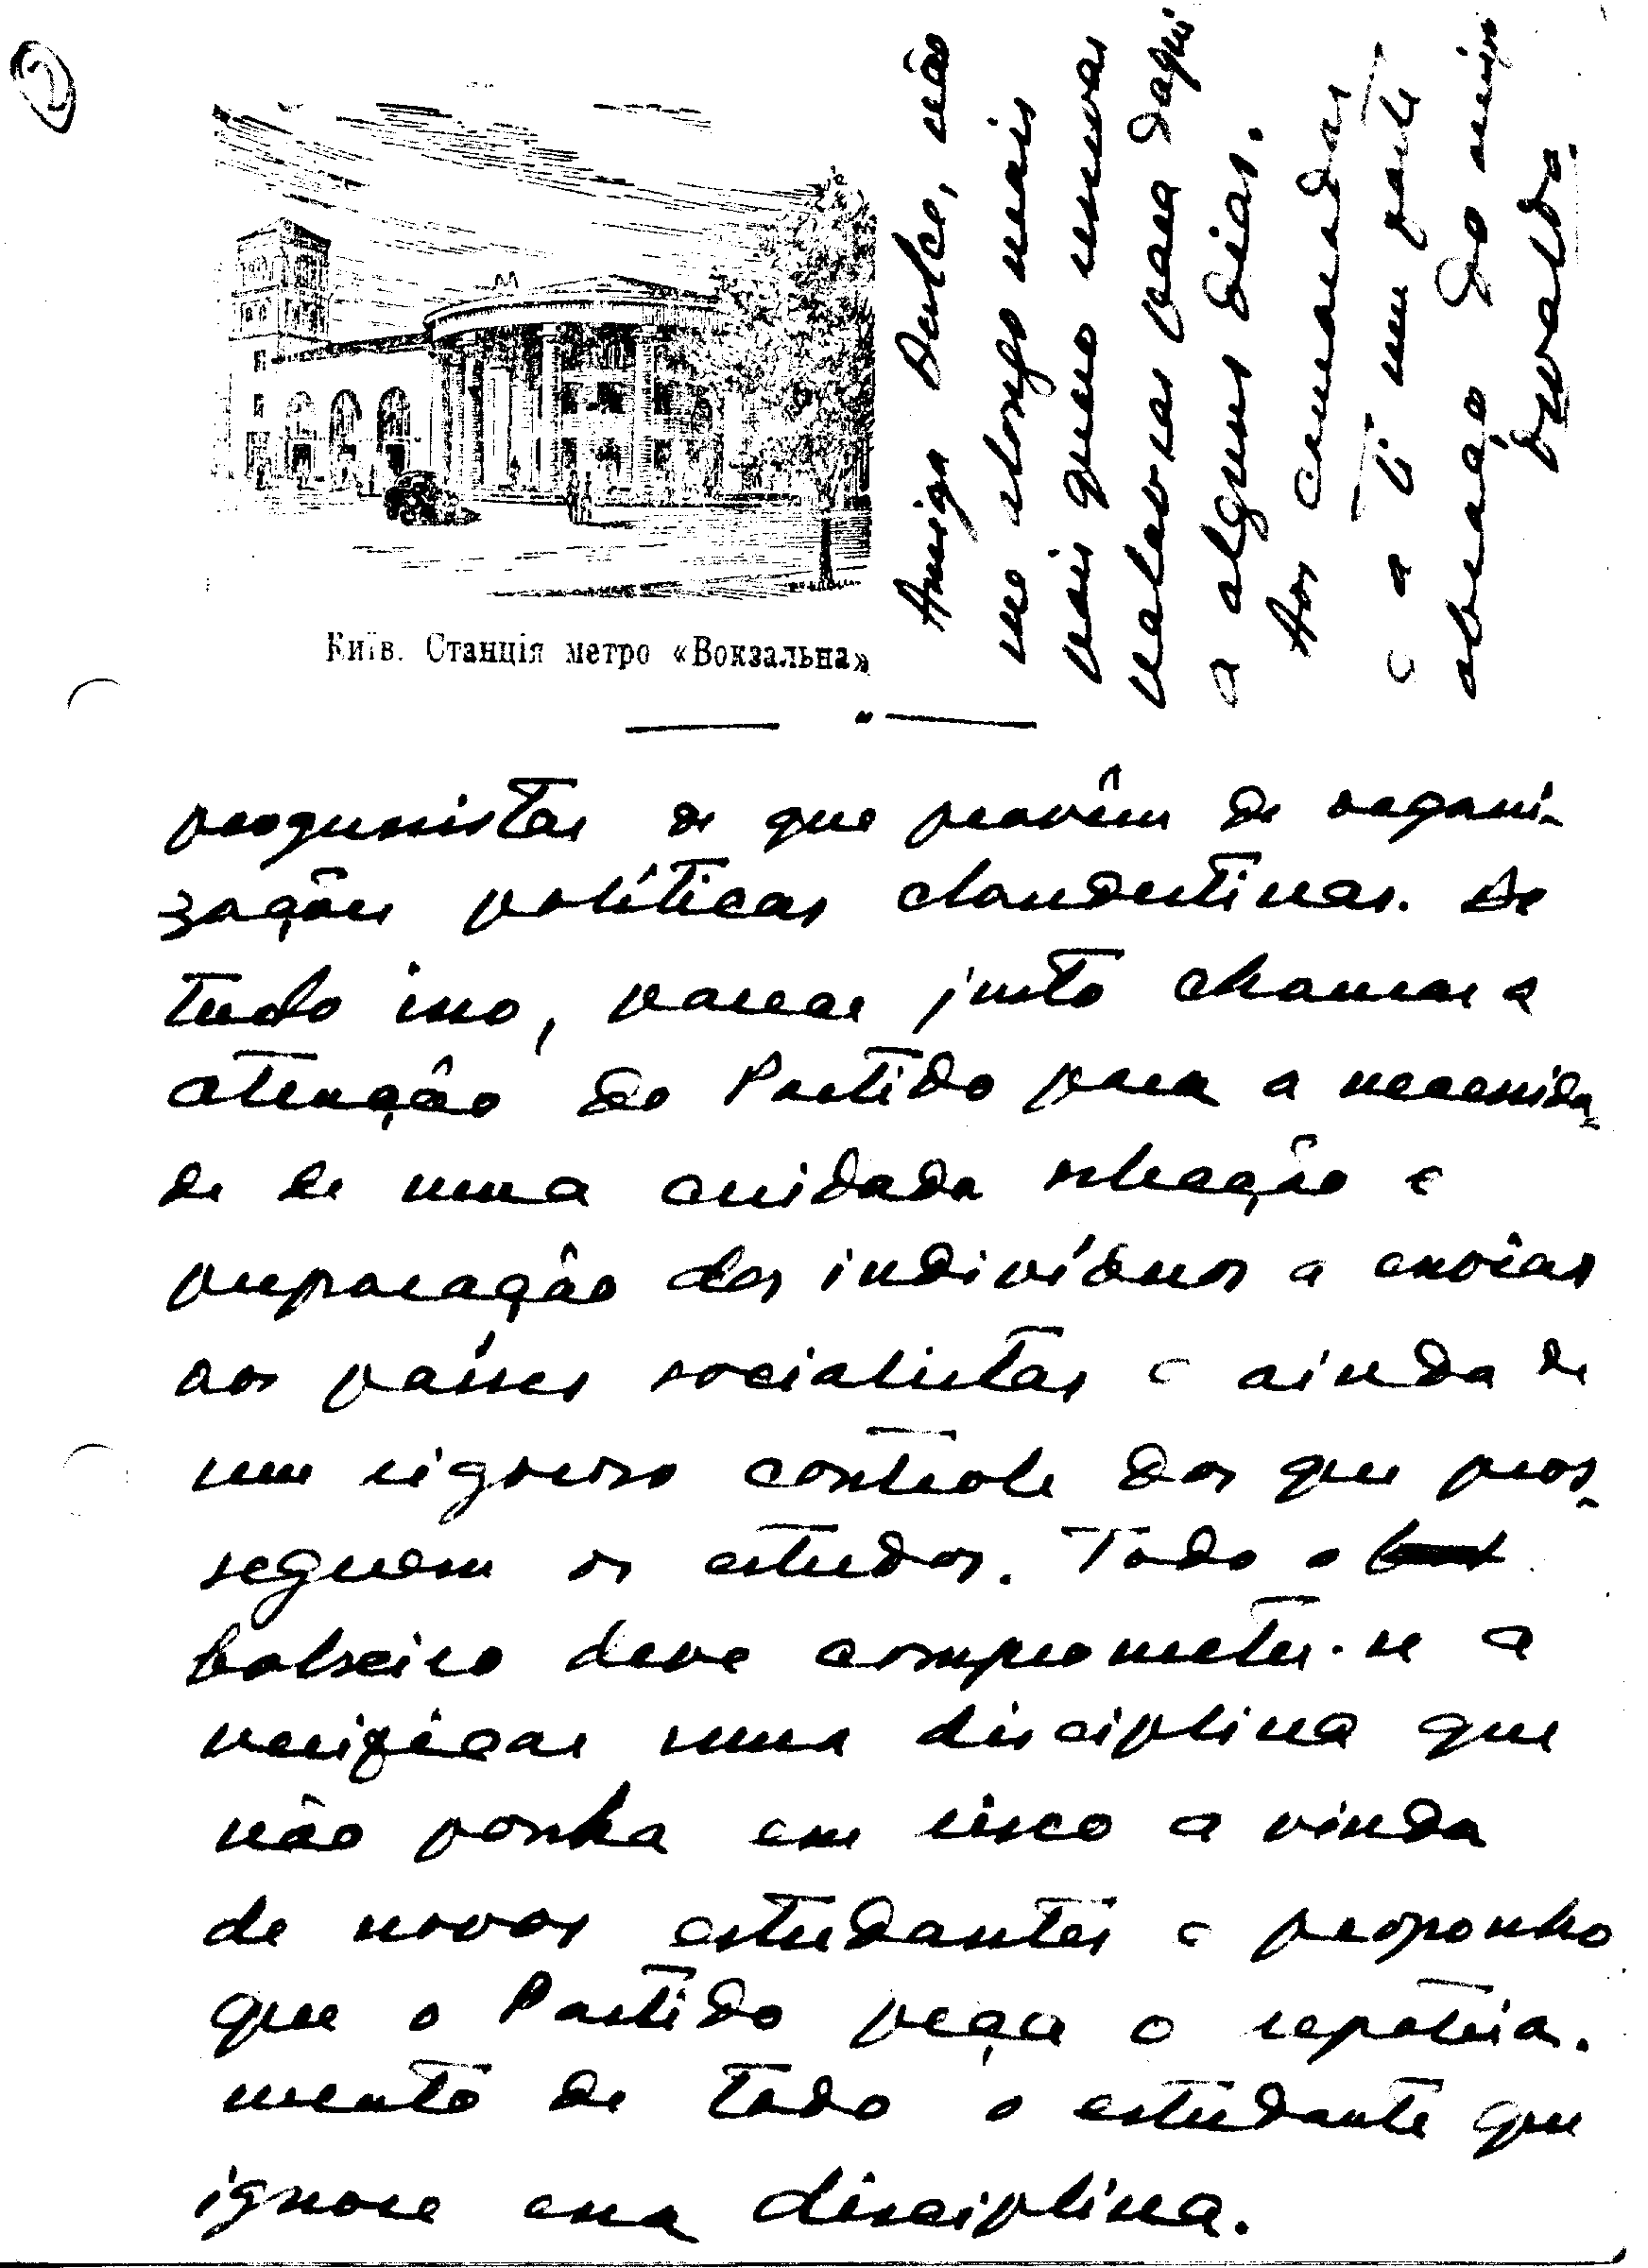 2
Київ. Станція метро «Вокзальна»
progressistas de que provêm de organi-
zações políticas clandestinas. De
tudo isso, parece justo chamar a
atenção do Partido para a necessida-
de de uma cuidada selecção e
preparação dos indivíduos a enviar
aos países socialistas e ainda de
um rigoroso controle dos que pros-
seguem os estudos. Todo o
bolseiro deve comprometer-se a
verificar uma disciplina que
não ponha em risco a vinda
de novos estudantes e proponho
que o Partido peça o repatria-
mento de todo o estudante que
ignore essa disciplina.
Amiga Dulce, não
me alongo mais
pois quero enviar
palavras para daqui
a alguns dias.
Aos camaradas
e a ti um forte
abraço do amigo